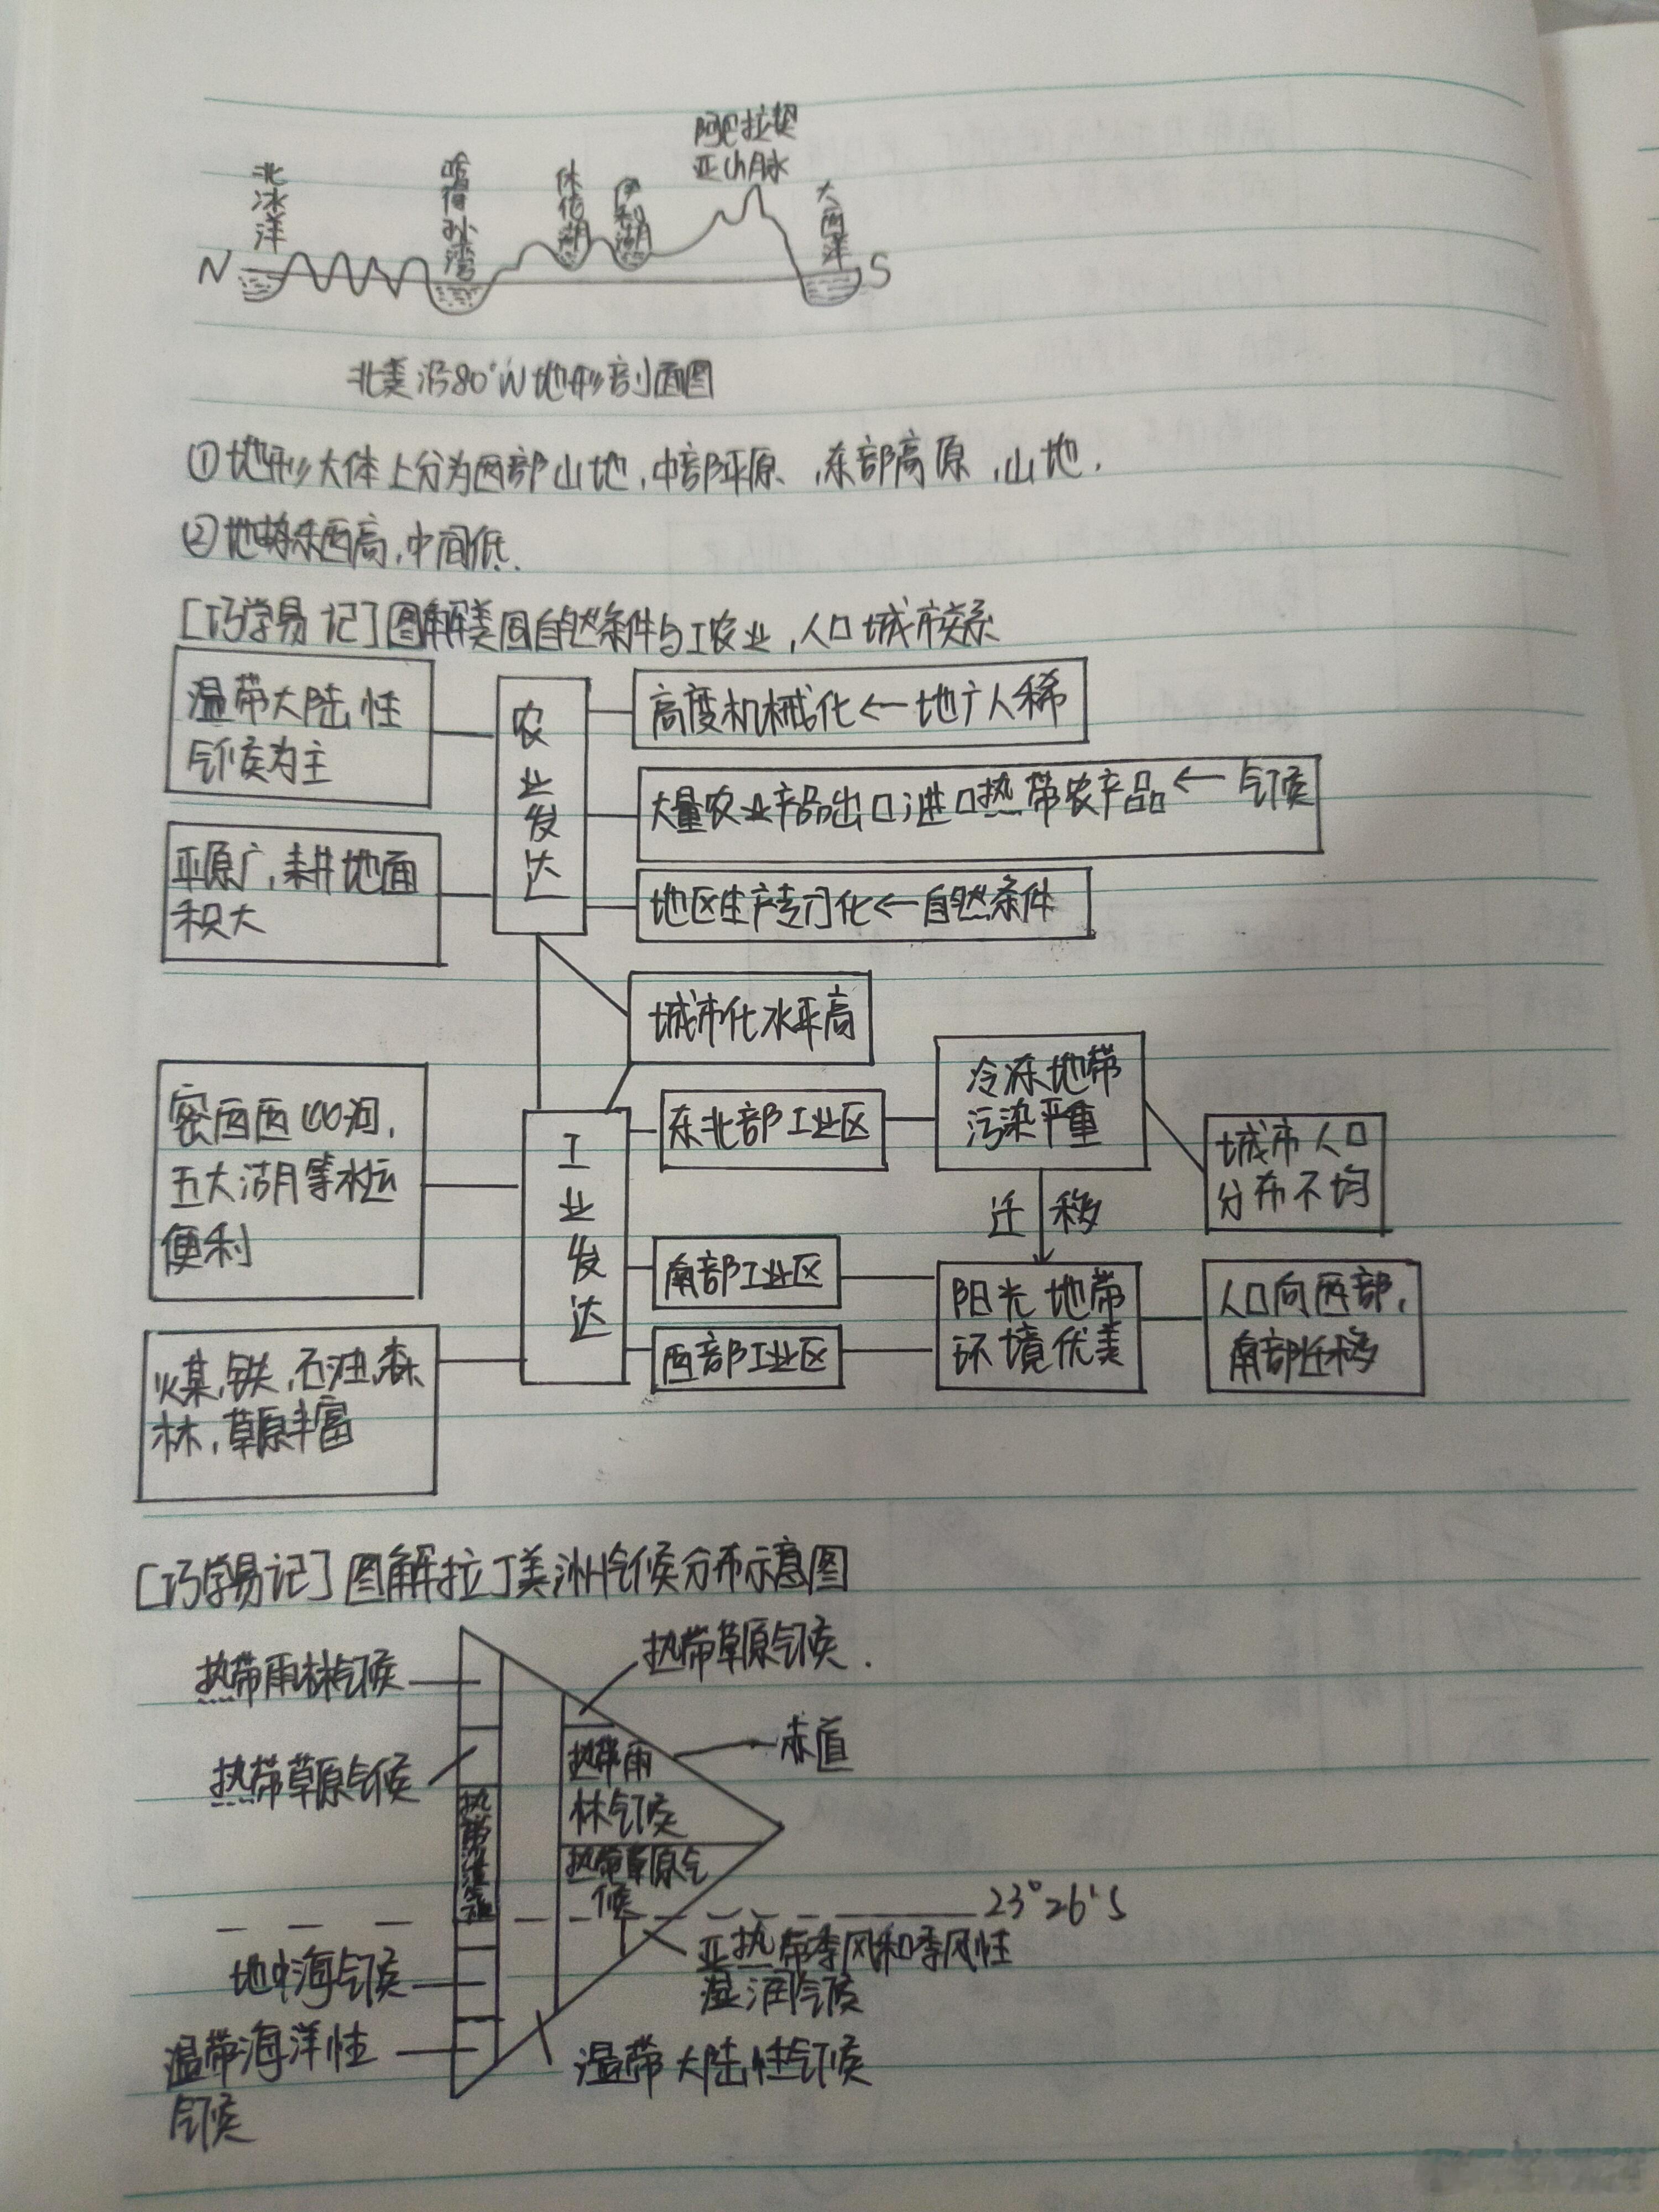 北冰洋
哈得孙湾
休伦湖
伊利湖
阿巴拉契
亚山脉
大西洋
N
S
北美沿80°W地形剖面图
①地形大体上分为西部山地,中部平原、东部高原、山地.
②地势东西高,中间低.
[巧学易记]图解美国自然条件与工农业,人口城市关系
温带大陆性
气候为主
平原广,耕地面
积大
农业发达
高度机械化←地广人稀
大量农业产品出口进口热带农产品←气候
地区生产专门化←自然条件
城市化水平高
密西西比河,
五大湖等水运
便利
煤,铁,石油,森
林,草原丰富
工业发达
东北部工业区
南部工业区
西部工业区
冷冻地带
污染严重
迁移
阳光地带
环境优美
城市人口
分布不均
人口向西部,
南部迁移
[巧学易记]图解拉丁美洲气候分布示意图
热带雨林气候
热带草原气候
地中海气候
温带海洋性
气候
热带草原气候.
赤道
热带雨
林气候
热带草原气
候
23°26'S
亚热带季风和季风性
湿润气候
温带大陆性气候